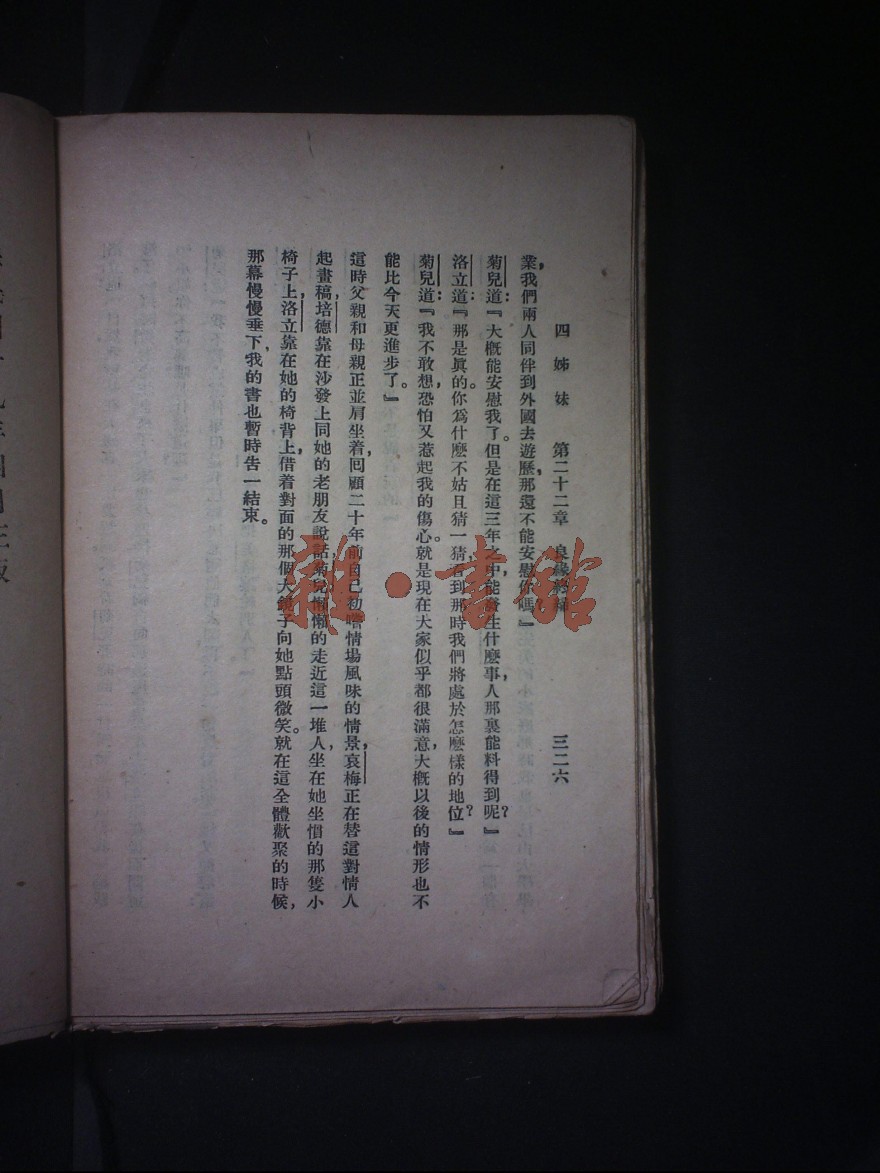 四姊妹 第二十二章 良緣 三二六
業,我們兩人同伴到外國去遊歷,那還不能安慰你嗎?』
菊兒道:『大概能安慰我了。但是在這三年之中,能發生什麼事,人那裏能料得到呢?』
洛立道:『那是眞的。你爲什麼不姑且猜一猜,看到那時我們將處於怎麼樣的地位?』
菊兒道:『我不敢想,恐怕又惹起我的傷心。就是現在大家似乎都很滿意,大概以後的情形也不
能比今天更進步了。』
這時父親和母親正並肩坐着,囘顧二十年前自己初嚐情場風味的情景,哀梅正在替這對情人
起畫稿,培德靠在沙發上同她的老朋友說話,菊兒懶懶的走近這一堆人,坐在她坐慣的那隻小
椅子上,洛立靠在她的椅背上,借着對面的那個大鏡子向她點頭微笑。就在這全體歡聚的時候,
那幕慢慢垂下,我的書也暫時告一結束。
雜·書館